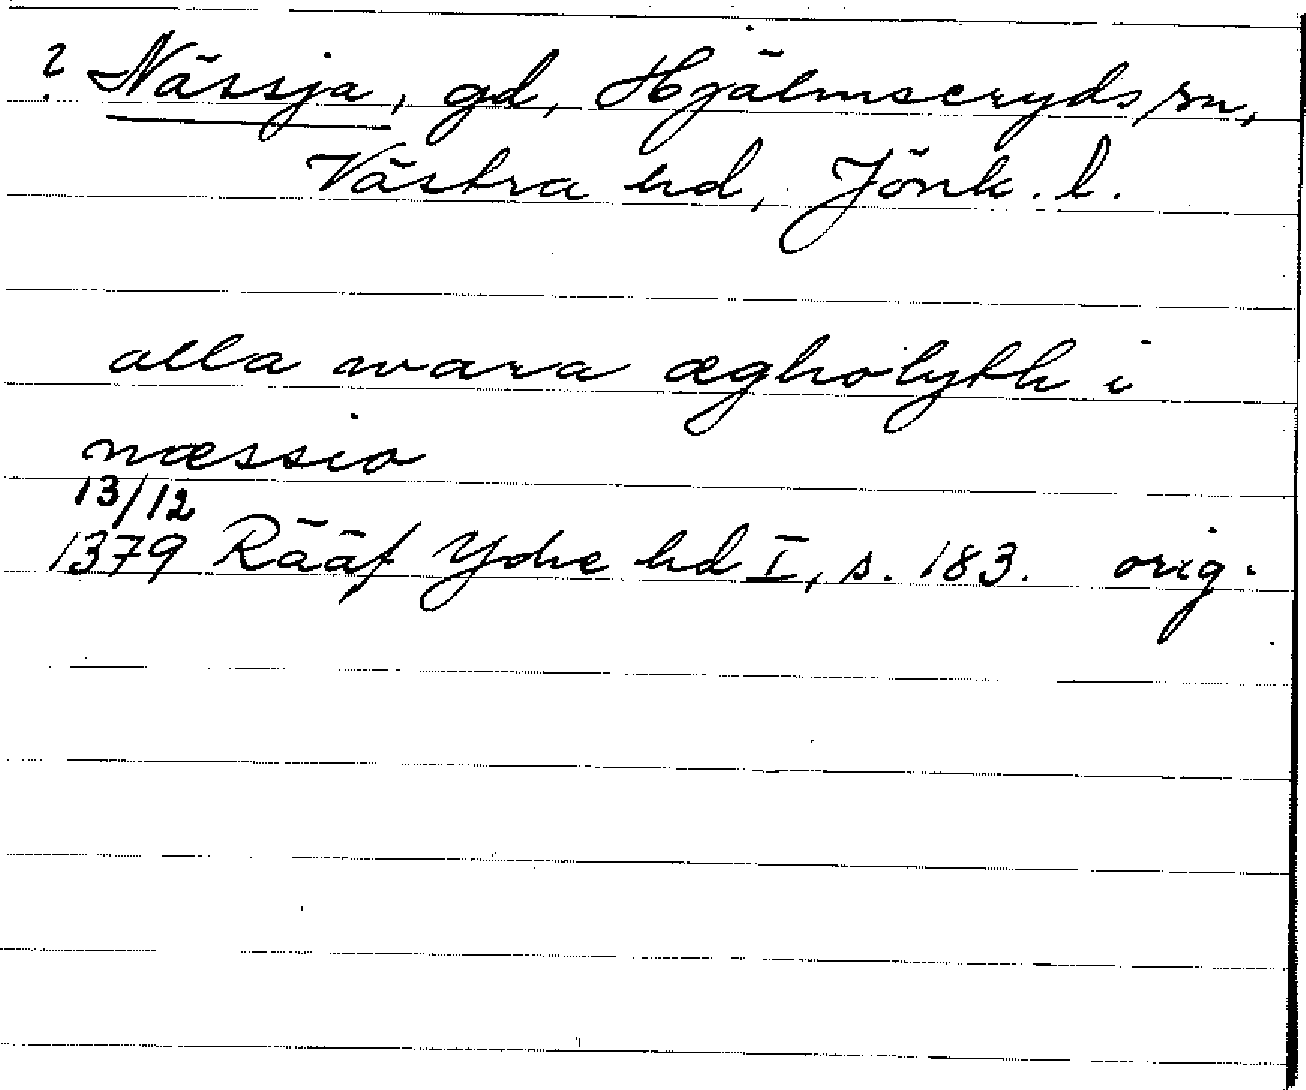 ? Nässja, gd, Hjälmseryds sn,
Västra hd, Jönk. l.
alla wara ægholyth i
næssio
13/12
1379 Rääf Ydre hd I, s. 183. orig.